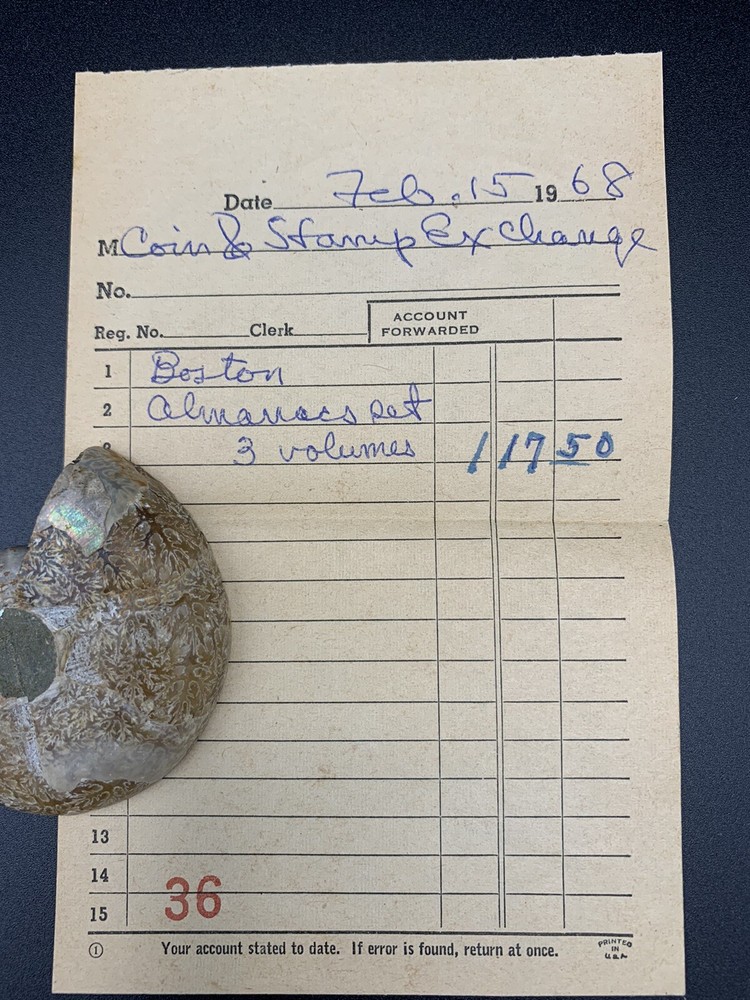 Date Feb. 15 1968
M Coin & Stamp Exchange
No.
Reg. No. Clerk ACCOUNT FORWARDED
1 Boston
2 Almanacs set
3 volumes 117 50
13
14
36
15
1 Your account stated to date. If error is found, return at once. PRINTED IN U.S.A.